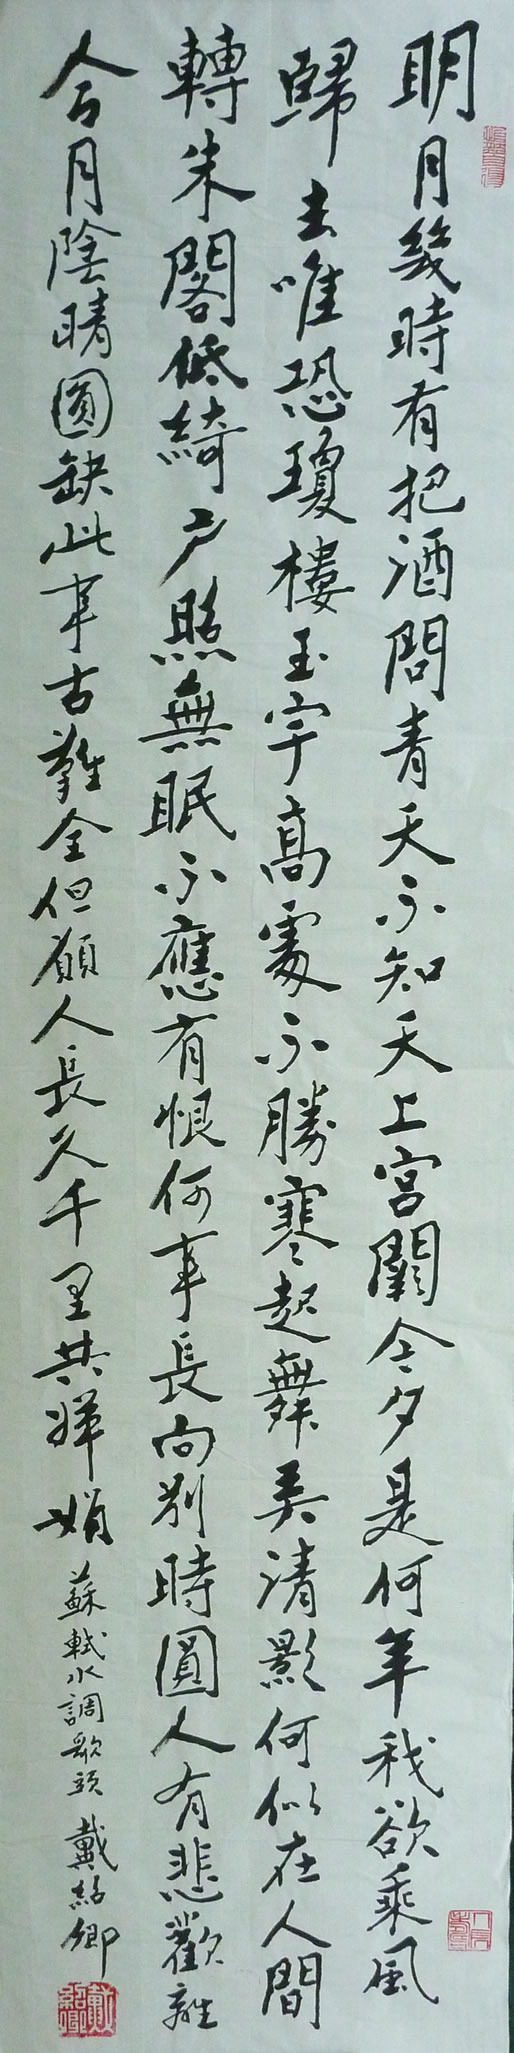 明月幾時有把酒問青天不知天上宮闕今夕是何年我欲乘風
歸去唯恐瓊樓玉宇高處不勝寒起舞弄清影何似在人間
轉朱閣低綺戶照無眠不應有恨何事長向別時圓人有悲歡離
合月陰晴圓缺此事古難全但願人長久千里共嬋娟 蘇軾水調歌頭 戴紹卿